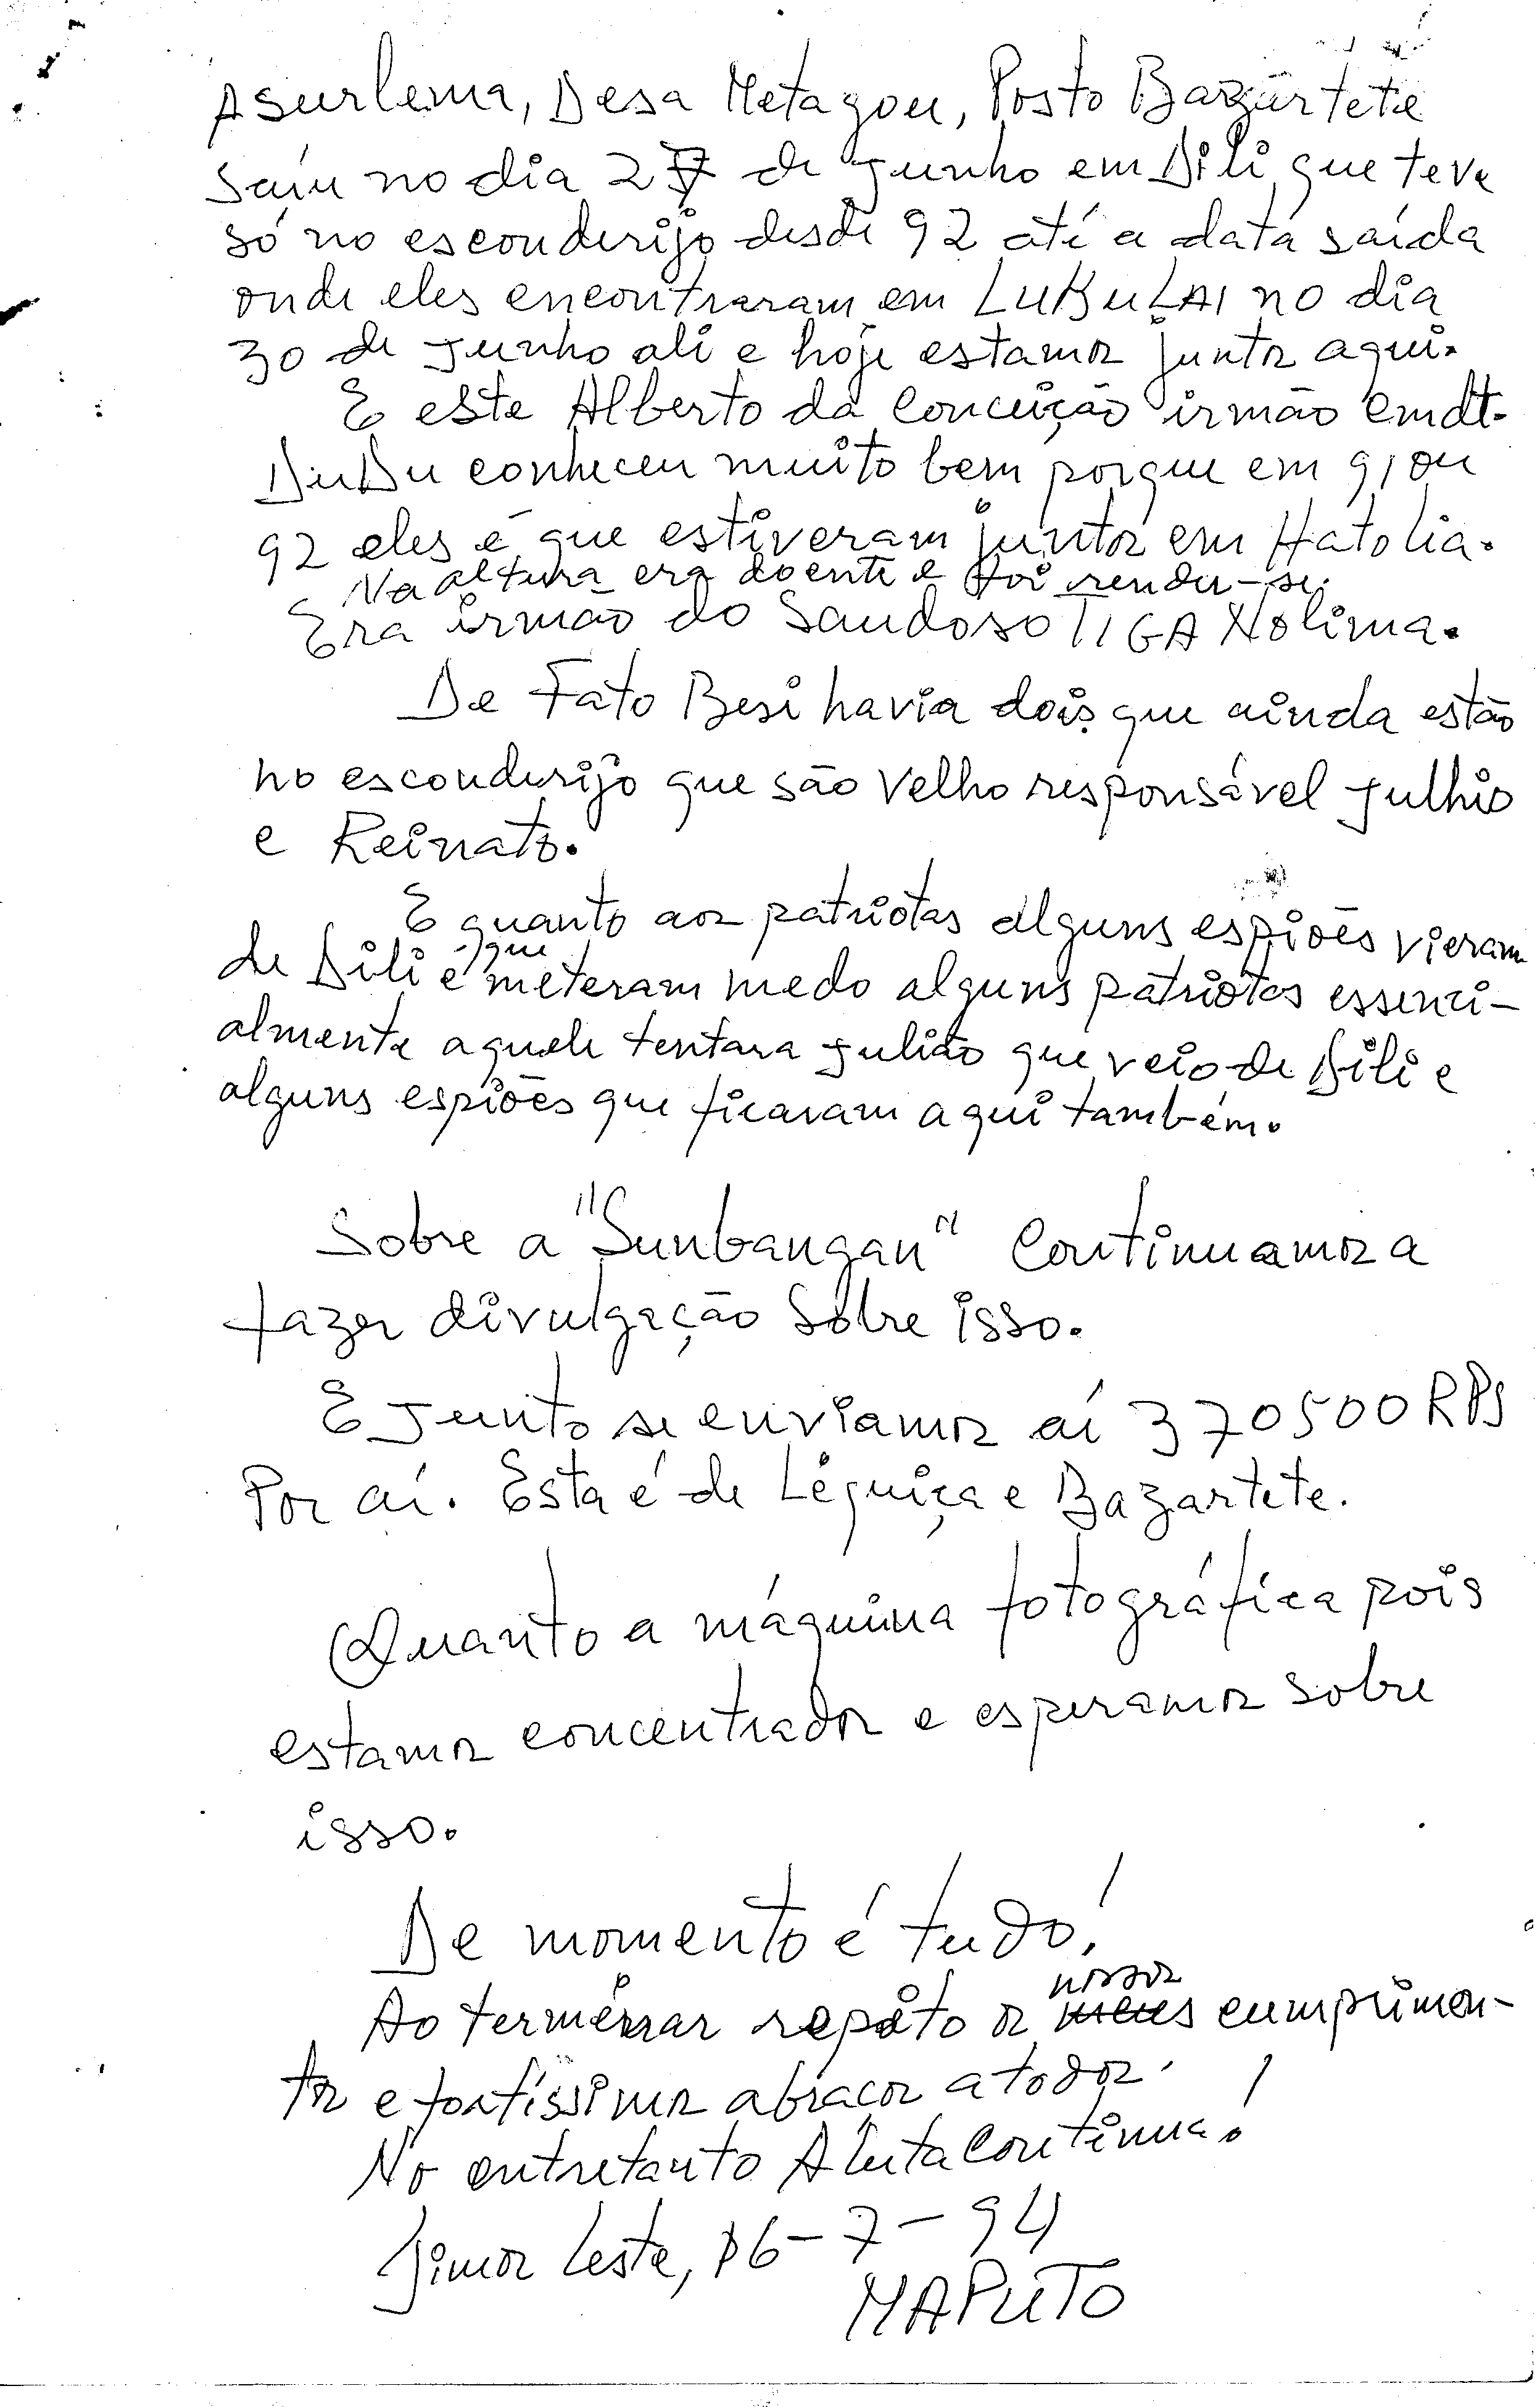 Asurlema, Desa Metagou, Posto Bazartete
saíu no dia 27 de Junho em Dili que teve
só no esconderijo desde 92 até a data saída
onde eles encontraram em LUKULAI no dia
30 de Junho ali e hoje estamos juntos aqui.
E este Alberto da Conceição irmão cmdt.
DuDu conheceu muito bem porque em 91 ou
92 eles é que estiveram juntos em Hatolia.
Na altura era doente e foi rendu-se.
Era irmão do Saudoso TIGA Nolima.
De Fato Besi havia dois que ainda estão
no esconderijo que são Velho responsável Julhio
e Reinato.
E quanto aos patriotas alguns espiões vieram
de Dili é que meteram medo alguns patriotas essenci-
almente aquele tentara Julião que veio de Dili e
alguns espiões que ficaram aqui também.
Sobre a "Sunbangan" Continuamos a
fazer divulgação sobre isso.
E Junto se enviamos aí 370500 RPS
Por aí. Esta é de Léquiça e Bazartete.
Quanto a máquina fotográfica pois
estamos concentrados e esperamos sobre
isso.
De momento é tudo!
Ao terminar repito os nossos cumprimen-
tos e fortíssimos abraços a todos.
No entretanto A Luta Continua!
Timor Leste, 16-7-94
MAPUTO